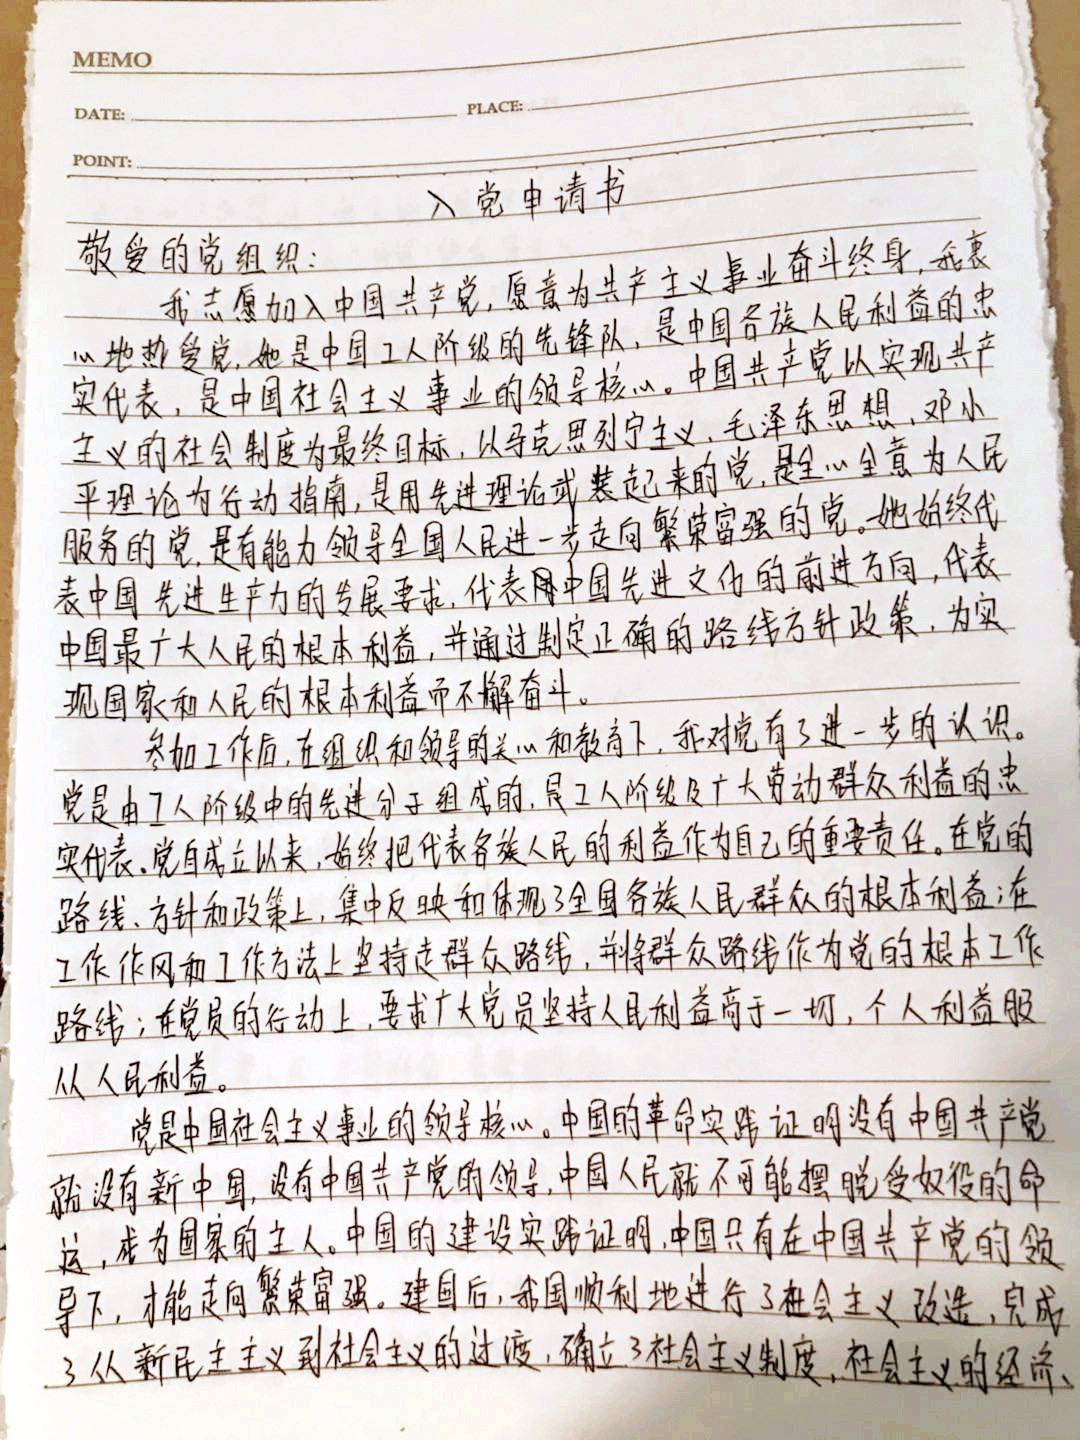 MEMO
DATE:
PLACE:
POINT:
入党申请书
敬爱的党组织：
我志愿加入中国共产党，愿意为共产主义事业奋斗终身，我衷
心地热爱党，她是中国工人阶级的先锋队，是中国各族人民利益的忠
实代表，是中国社会主义事业的领导核心。中国共产党以实现共产
主义的社会制度为最终目标，以马克思列宁主义、毛泽东思想、邓小
平理论为行动指南，是用先进理论武装起来的党，是全心全意为人民
服务的党，是有能力领导全国人民进一步走向繁荣富强的党。她始终代
表中国先进生产力的发展要求，代表中国先进文化的前进方向，代表
中国最广大人民的根本利益，并通过制定正确的路线方针政策，为实
现国家和人民的根本利益而不懈奋斗。
参加工作后，在组织和领导的关心和教育下，我对党有了进一步的认识。
党是由工人阶级中的先进分子组成的，是工人阶级及广大劳动群众利益的忠
实代表。党自成立以来，始终把代表各族人民的利益作为自己的重要责任。在党的
路线、方针和政策上，集中反映和体现了全国各族人民群众的根本利益；在
工作作风和工作方法上坚持走群众路线，并将群众路线作为党的根本工作
路线；在党员的行动上，要求广大党员坚持人民利益高于一切，个人利益服
从人民利益。
党是中国社会主义事业的领导核心。中国的革命实践证明没有中国共产党
就没有新中国，没有中国共产党的领导，中国人民就不可能摆脱受奴役的命
运，成为国家的主人。中国的建设实践证明，中国只有在中国共产党的领
导下，才能走向繁荣富强。建国后，我国顺利地进行了社会主义改造，完成
了从新民主主义到社会主义的过渡，确立了社会主义制度，社会主义的经济、